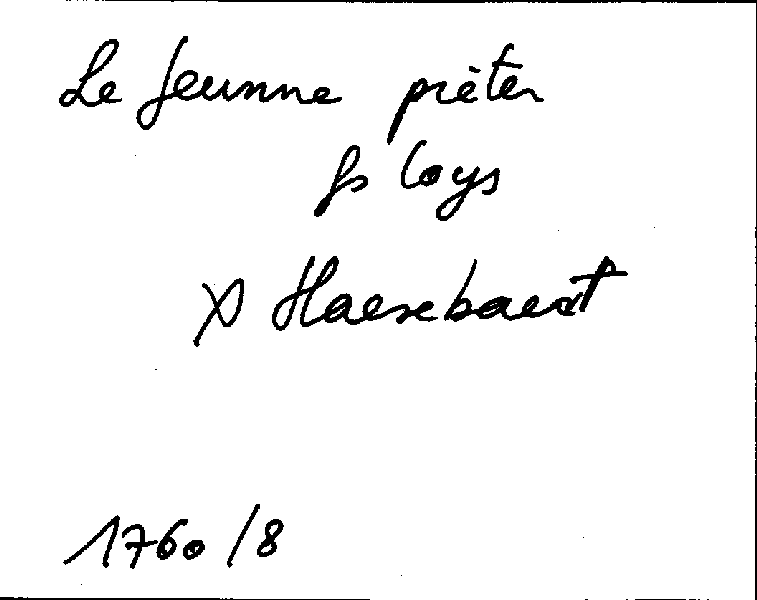 Le Jeunne pièter
fs Loys
X Haesebaert
1760/8